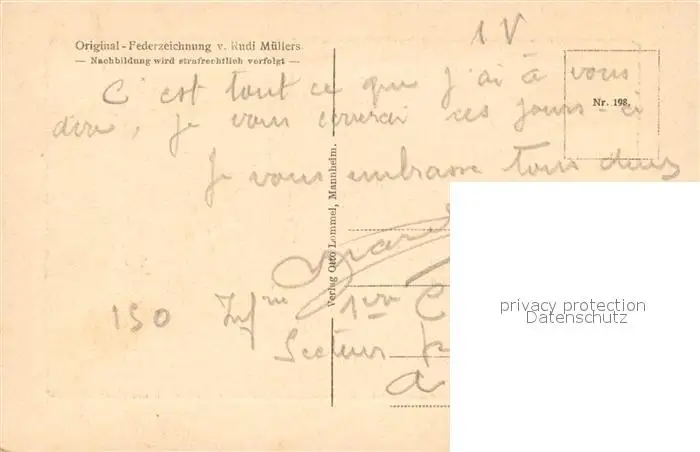 IV
Original-Federzeichnung v. Rudi Müllers
— Nachbildung wird strafrechtlich verfolgt —
C'est tout ce que j'ai à vous
dire, je vous ces jours-ci
Nr. 198.
Je vous embrasse tous deux
Verlag Otto Lommel, Mannheim.
150 Infrie 1ère C
Secteur
privacy protection
Datenschutz